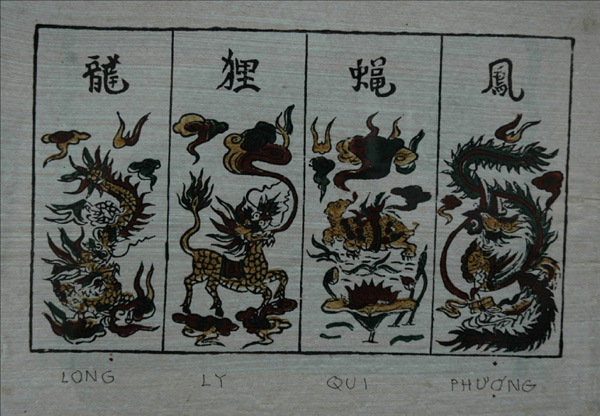 龍 狸 蝿 鳳
LONG LY QUI PHƯỢNG